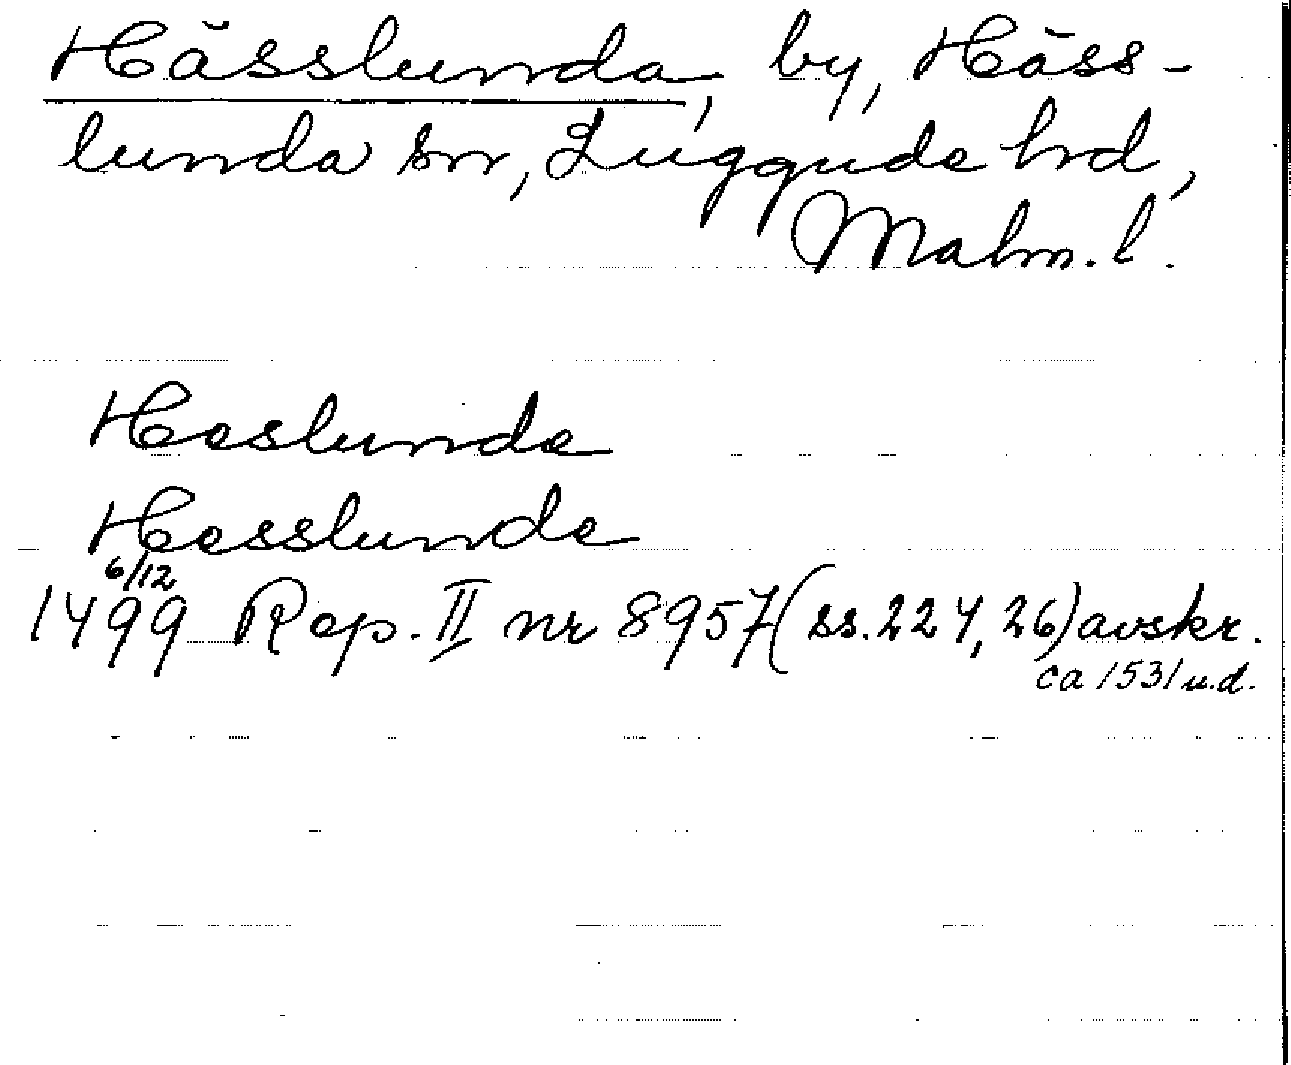 Hässlunda, by, Häss-
lunda sn, Luggude hd,
Malm. l.
Heslunde
Hesslunde
6/12
1499 Rep. II nr 8957 (ss. 224, 26) avskr.
ca 1531 u.d.